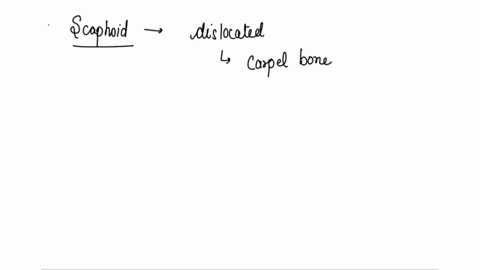 Scaphoid → dislocated
↳ carpel bone